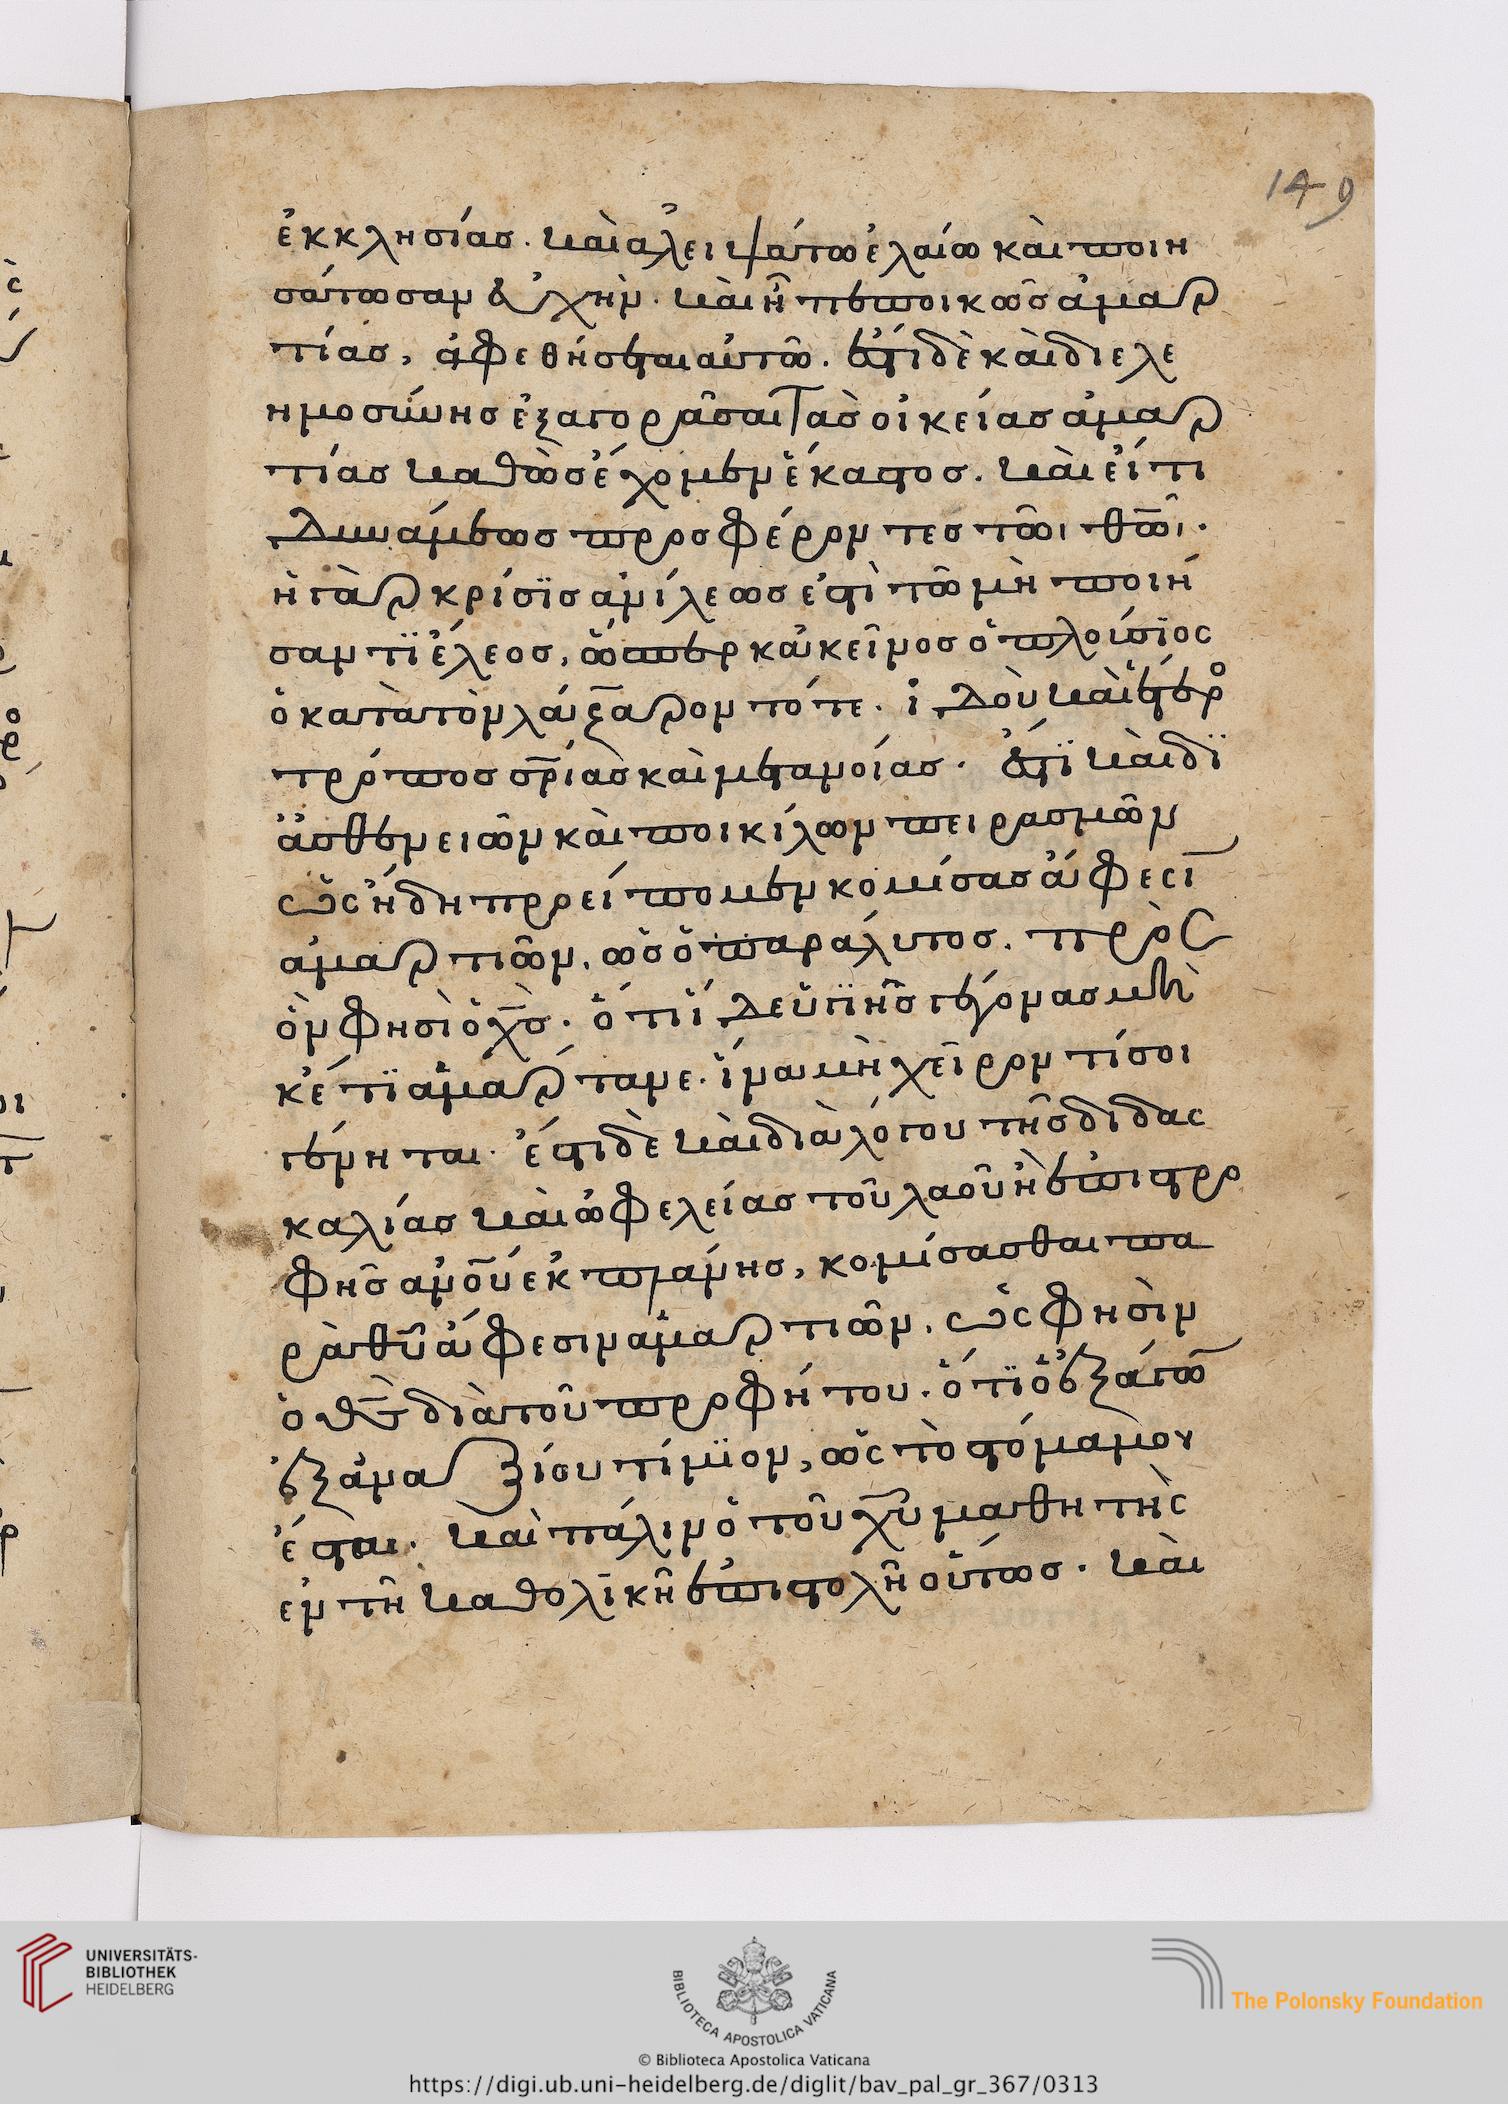 149
ἐκκλησίας. καὶ ἀλειψάτω ἐλαίω καὶ ποιη
σάτωσαν εὐχήν. καὶ ἢ πεποικὼς ἁμαρ
τίας, ἀφεθήσεται αὐτῶ. ἔτι δὲ καὶ δι ἐλε
ημοσύνης ἐξαγορᾶσαι τὰς οἰκείας ἁμαρ
τίας καθὼς ἔχομεν ἕκαστος. καὶ εἴ τι
δυνάμεως προσφέροντες τῶι θῶι.
ἡ γὰρ κρίσϊς ἀνίλεως ἐστὶ τῶ μὴ ποιή
σαντϊ ἔλεος, ὥσπερ κἀκεῖνος ὁ πλούσϊος
ὁ κατὰ τὸν λάζαρον τότε. ἰδοὺ καὶ ἕτερο
τρόπος σ̅ρίας καὶ μετανοίας. ἔτϊ καὶ δϊ
ἀσθενειῶν καὶ ποικίλων πειρασμῶν
ὡς ἤδη προείπομεν κομίσας ἄφεσι
ἁμαρτιῶν, ὡς ὁ παράλυτος. πρὸς
ὃν φησὶ ὁ χ̅ς. ὅτι ἴδε ὑγϊὴς γέγονας μὴ
κέτϊ ἁμάρτανε. ἵνα μὴ χεῖρον τί σοι
γένηται. ἔστι δὲ καὶ διὰ λόγου τῆς διδας
καλίας καὶ ὠφελείας τοῦ λαοῦ ἢ ἐπιστρο
φῆς ἀνοῦ ἐκ πλάνης, κομίσασθαι πα
ρὰ θ̅υ ἄφεσιν ἁμαρτιῶν, ὡς φησὶν
ὁ θ̅ς διὰ τοῦ προφήτου. ὅτϊ ὁ ἐξάγω
ἐξ ἀναξίου τίμϊον, ὡς τὸ στόμα μου
ἔσται. καὶ πάλιν ὁ τοῦ χ̅υ μαθητὴς
ἐν τῆ καθολικῆ ἐπιστολῆ οὕτως. καὶ
UNIVERSITÄTS-
BIBLIOTHEK
HEIDELBERG
BIBLIOTECA APOSTOLICA VATICANA
The Polonsky Foundation
© Biblioteca Apostolica Vaticana
https://digi.ub.uni-heidelberg.de/diglit/bav_pal_gr_367/0313